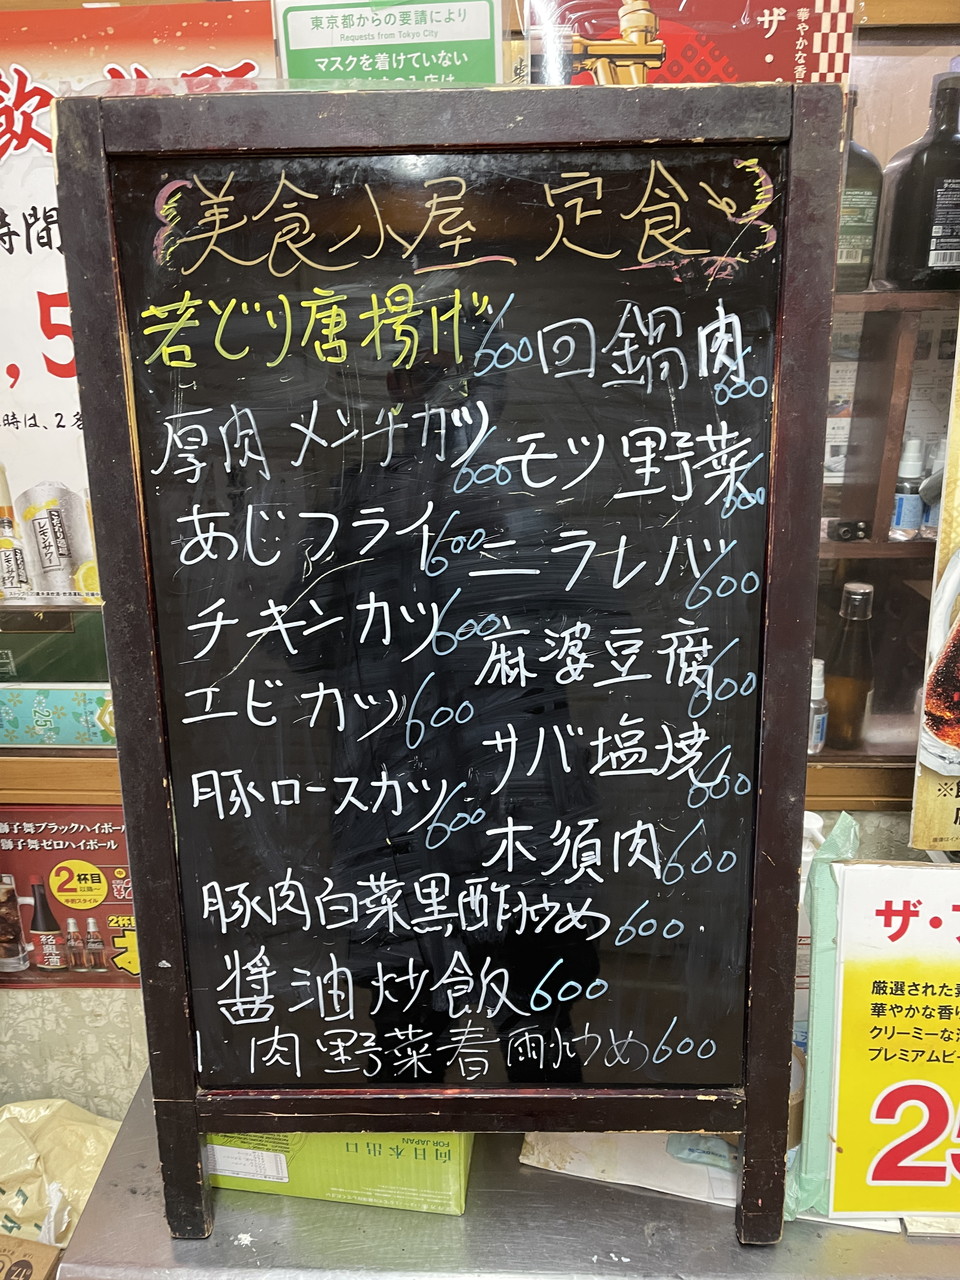 東京都からの要請により
Requests from Tokyo City
マスクを着けていない
ザ・
華やかな香り
時間
,5
時は、2名
美食小屋 定食
若どり唐揚げ 600
回鍋肉 600
厚肉メンチカツ 600
モツ野菜 600
あじフライ 600
ニラレバ 600
チキンカツ 600
麻婆豆腐 600
エビカツ 600
サバ塩焼 600
豚ロースカツ 600
木須肉 600
豚肉白菜黒酢炒め 600
醤油炒飯 600
肉野菜春雨炒め 600
レモンサワー
レモンサワー
25
獅子舞ブラックハイボール
獅子舞ゼロハイボール
2杯目
以降~
紹興酒
2杯
ザ・
厳選された
華やかな香り
クリーミーな
プレミアムビー
25
向日本出口
FOR JAPAN